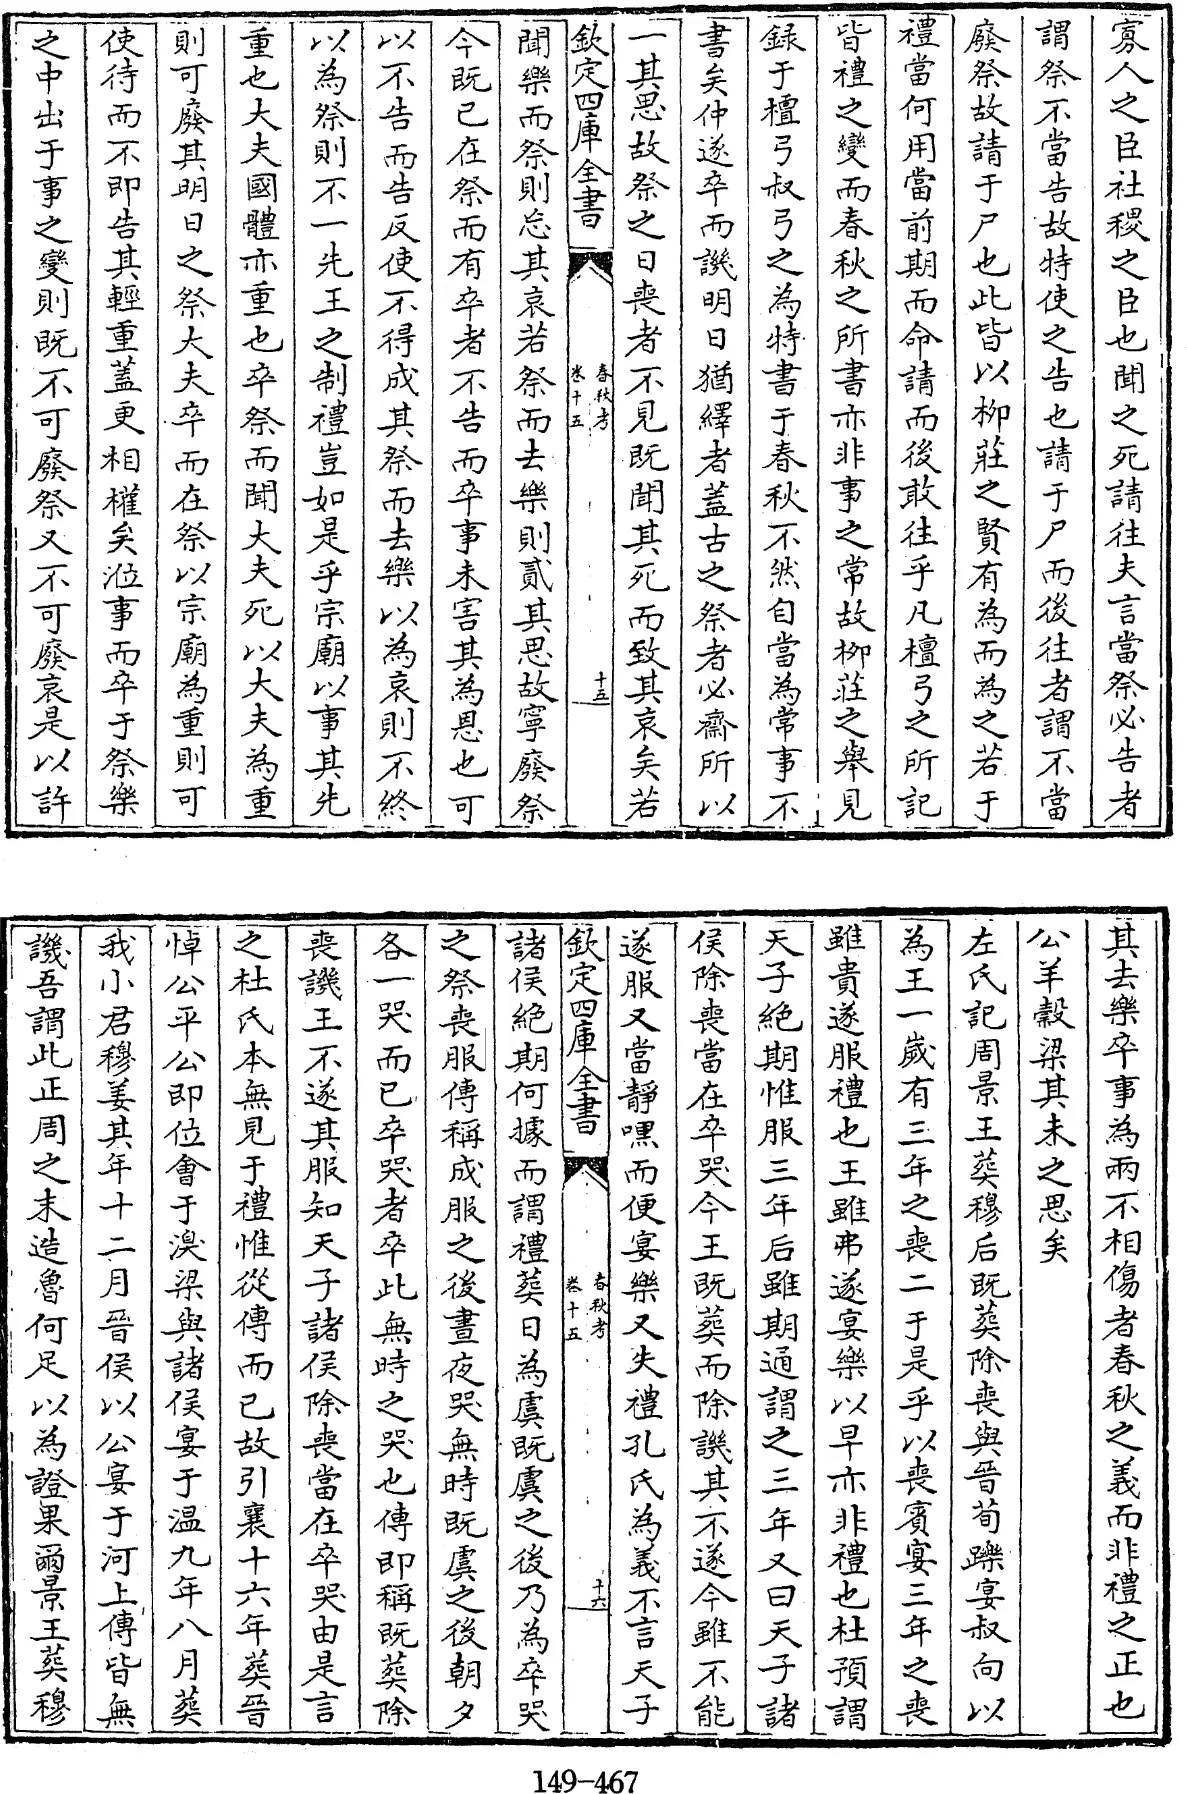 寡人之臣社稷之臣也聞之死請往夫言當祭必告者
謂祭不當告故特使之告也請于尸而後往者謂不當
廢祭故請于尸也此皆以柳莊之賢有為而為之若于
禮當何用當前期而命請而後敢往乎凡檀弓之所記
皆禮之變而春秋之所書亦非事之常故柳莊之舉見
録于檀弓叔弓之為特書于春秋不然自當為常事不
書矣仲遂卒而譏明日猶繹者蓋古之祭者必齋所以
一其思故祭之日喪者不見既聞其死而致其哀矣若
欽定四庫全書
春秋考
卷十五
十五
聞樂而祭則忘其哀若祭而去樂則貳其思故寧廢祭
今既已在祭而有卒者不告而卒事未害其為恩也可
以不告而告反使不得成其祭而去樂以為哀則不終
以為祭則不一先王之制禮豈如是乎宗廟以事其先
重也大夫國體亦重也卒祭而聞大夫死以大夫為重
則可廢其明日之祭大夫卒而在祭以宗廟為重則可
使待而不即告其輕重蓋更相權矣涖事而卒于祭樂
之中出于事之變則既不可廢祭又不可廢哀是以許
其去樂卒事為兩不相傷者春秋之義而非禮之正也
公羊穀梁其未之思矣
左氏記周景王葬穆后既葬除喪與晉荀躒宴叔向以
為王一歲有三年之喪二于是乎以喪賓宴三年之喪
雖貴遂服禮也王雖弗遂宴樂以早亦非禮也杜預謂
天子絶期惟服三年后雖期通謂之三年又曰天子諸
侯除喪當在卒哭今王既葬而除譏其不遂今雖不能
遂服又當靜嘿而便宴樂又失禮孔氏為義不言天子
欽定四庫全書
春秋考
卷十五
十六
諸侯絶期何據而謂禮葬日為虞既虞之後乃為卒哭
之祭喪服傳稱成服之後晝夜哭無時既虞之後朝夕
各一哭而已卒哭者卒此無時之哭也傳即稱既葬除
喪譏王不遂其服知天子諸侯除喪當在卒哭由是言
之杜氏本無見于禮惟從傳而已故引襄十六年葬晉
悼公平公即位會于湨梁與諸侯宴于温九年八月葬
我小君穆姜其年十二月晉侯以公宴于河上傳皆無
譏吾謂此正周之末造魯何足以為證果爾景王葬穆
149-467